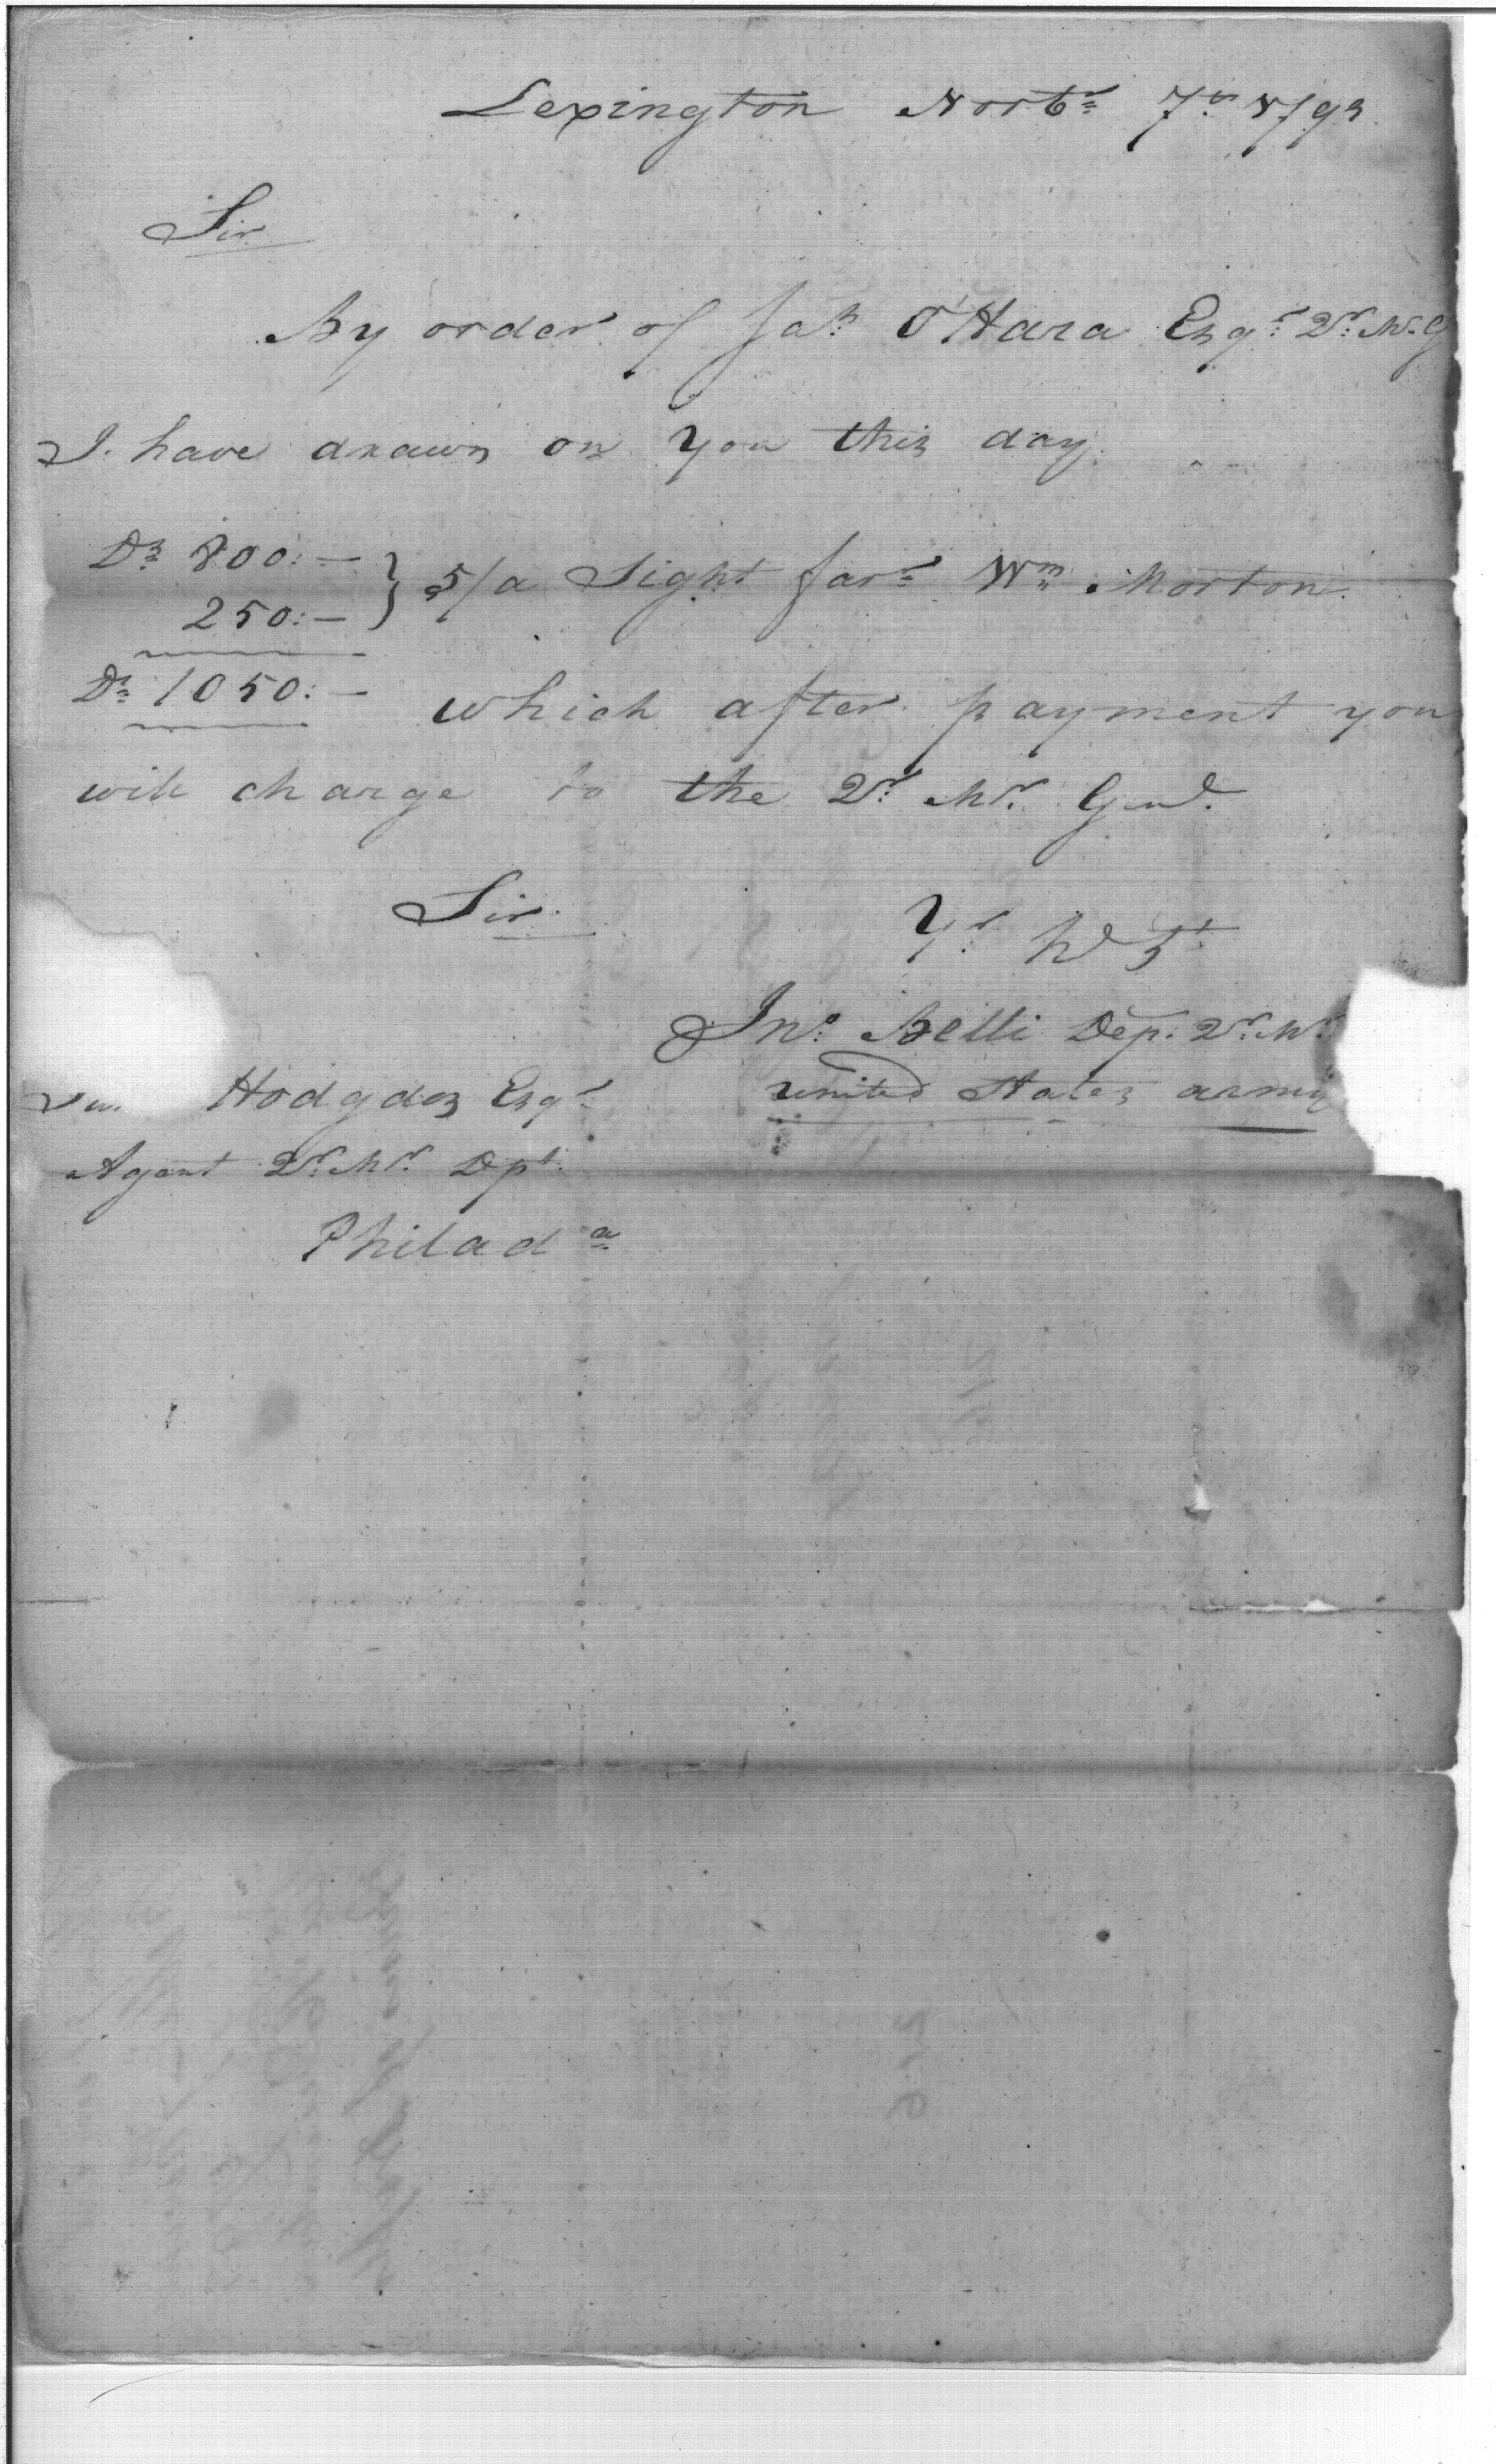 Lexington Novbr 7th 1793
Sir
By order of Jas O'Hara Esqr Qr Mr G
I have drawn on you this day
Ds 800:—
250:— } 5/d Sight favr Wm Morton
Ds 1050:—
which after payment you
will charge to the Qr Mr Genl.
Sir
Yr hb St
Jno Belli Dep. Qr Mr
United States army
Hodgdon Esqr
Agent Qr Mr Dpt
Philada